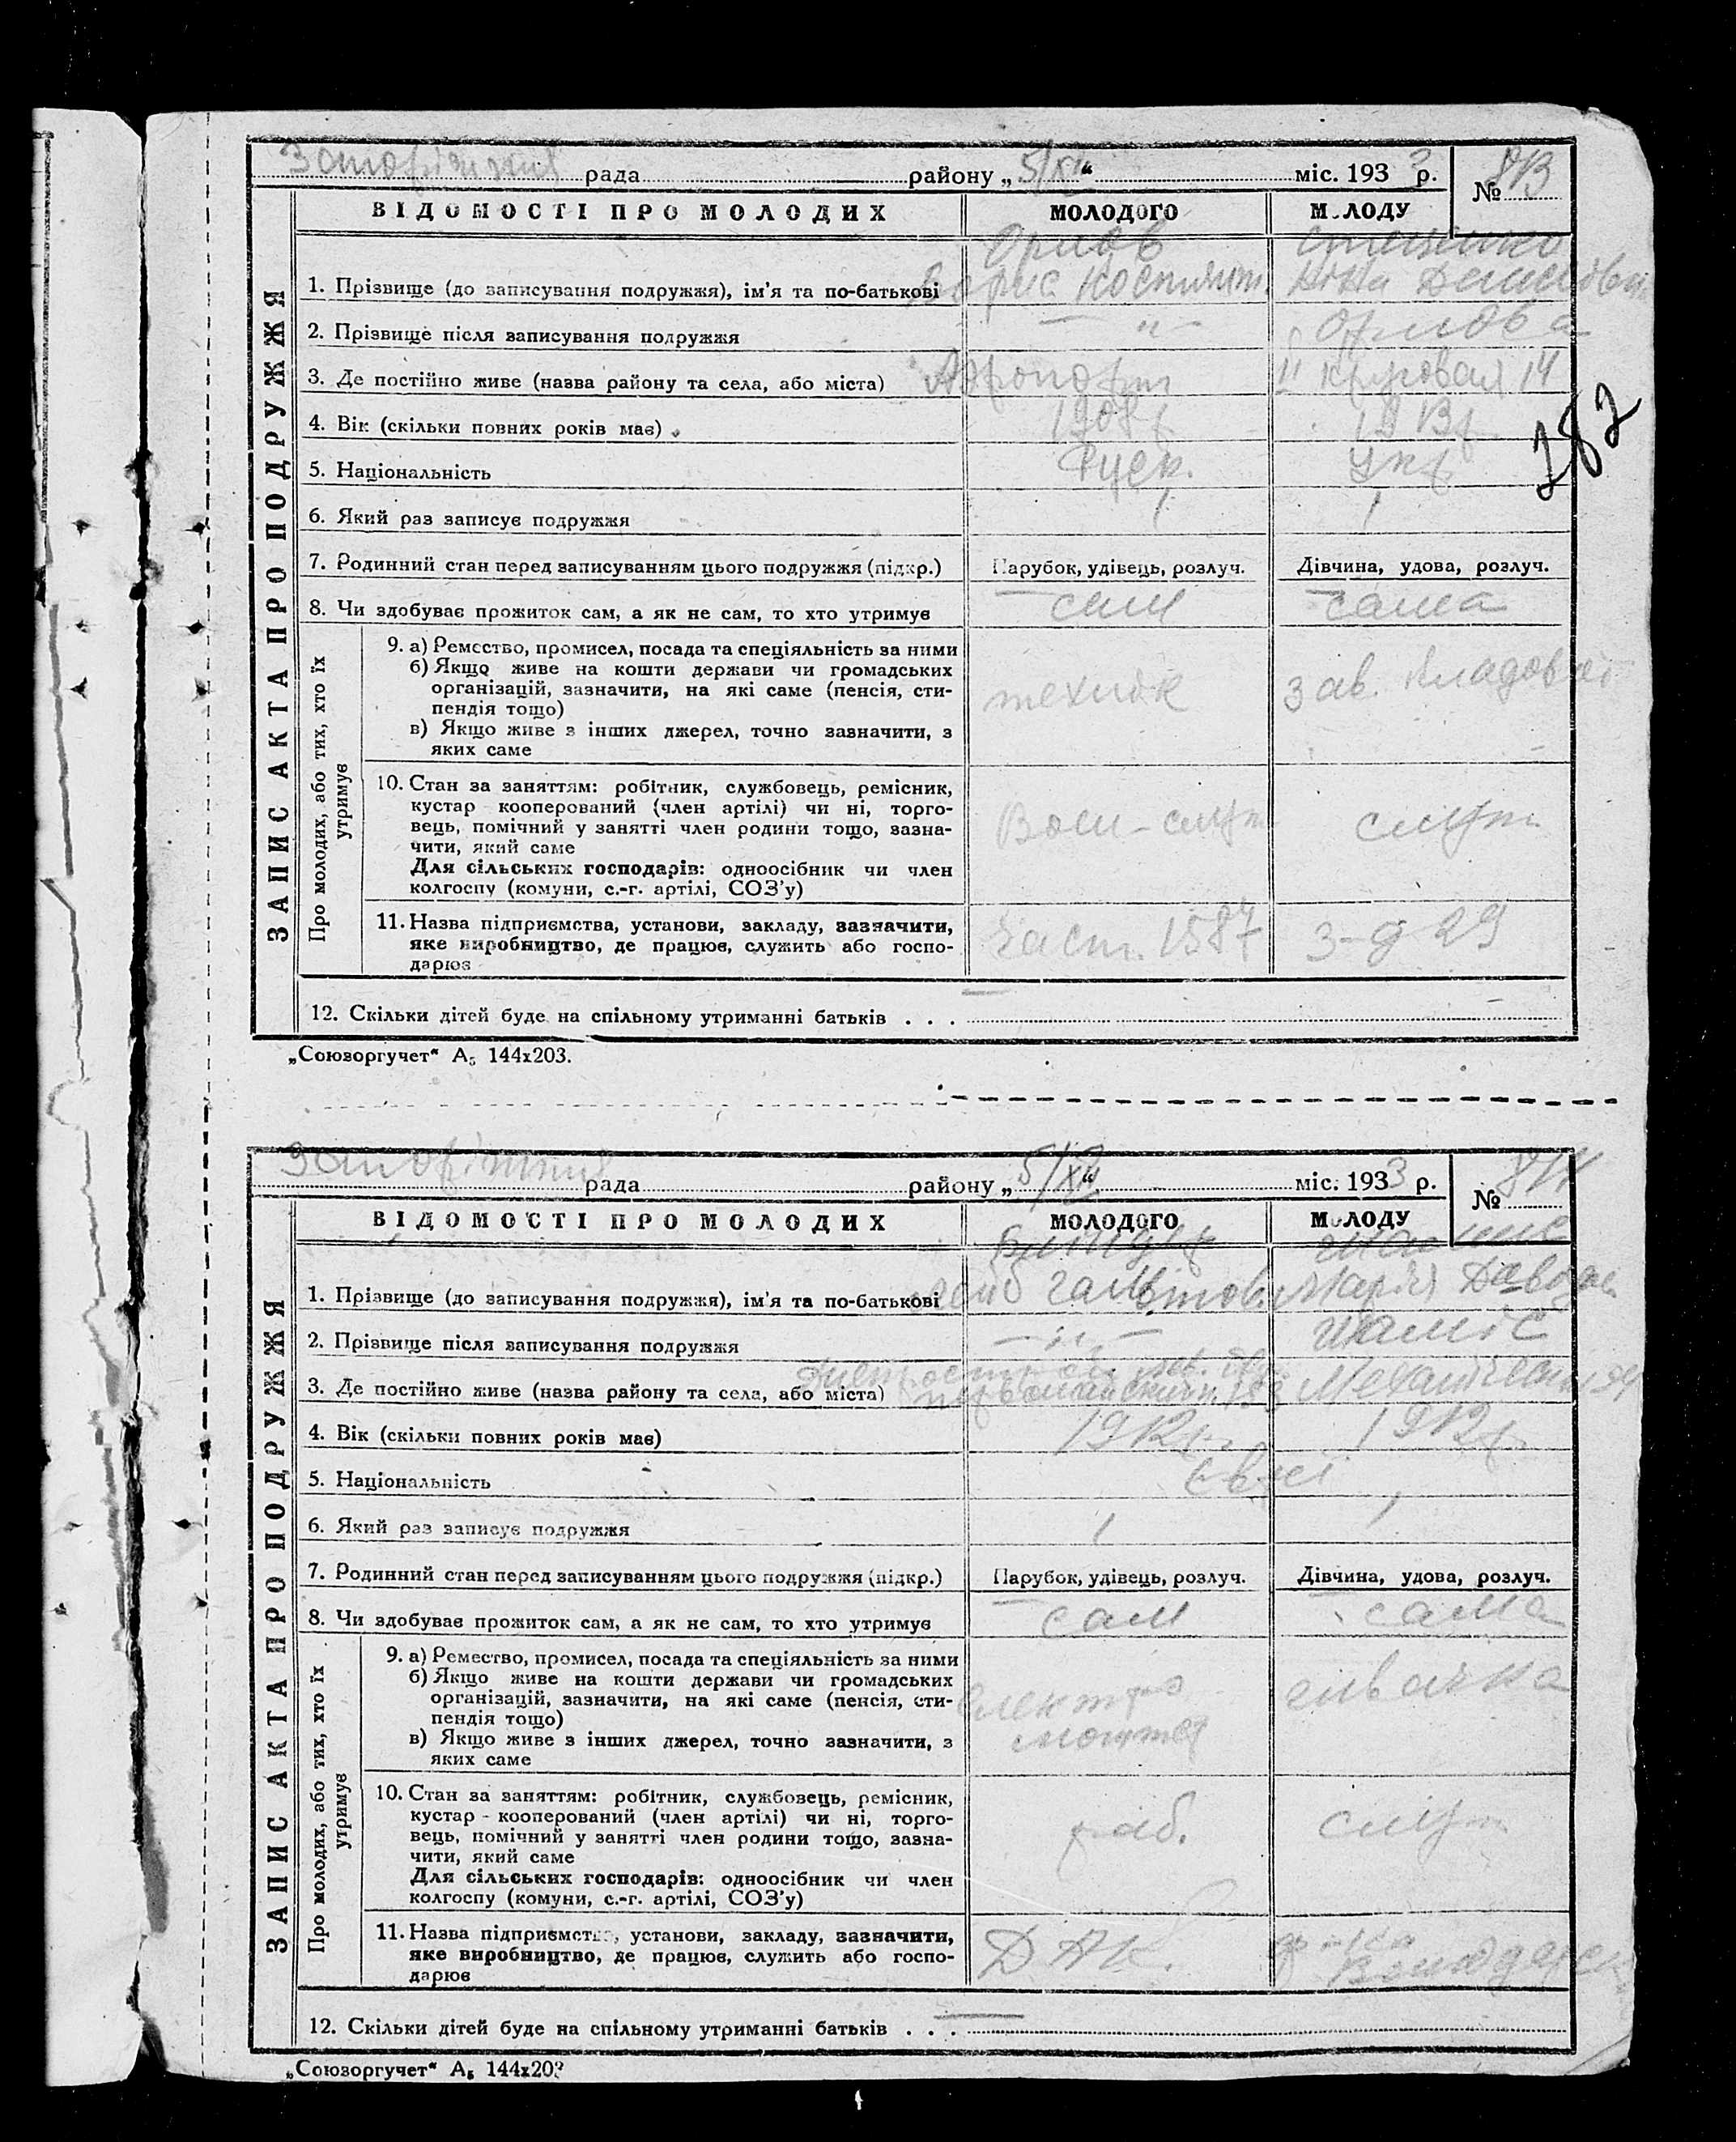 Запоріжжя рада району „ 5/XII “ міс. 1933 р. № 813
ЗАПИС АКТА ПРО ПОДРУЖЖЯ
ВІДОМОСТІ ПРО МОЛОДИХ МОЛОДОГО МОЛОДУ
Орлов
1. Прізвище (до записування подружжя), ім’я та по-батькові Борис Костянт.
2. Прізвище після записування подружжя — " — Орлова
3. Де постійно живе (назва району та села, або міста) Аэропорт II Круговая 14
4. Вік (скільки повних років має) 1908 р. 1913 р.
5. Національність Руск. Укр
6. Який раз записує подружжя 1 1
7. Родинний стан перед записуванням цього подружжя (підкр.) Парубок, удівець, розлуч. Дівчина, удова, розлуч.
8. Чи здобуває прожиток сам, а як не сам, то хто утримує сам сама
Про молодих, або тих, хто їх утримує
9. а) Ремество, промисел, посада та спеціяльність за ними
б) Якщо живе на кошти держави чи громадських
організацій, зазначити, на які саме (пенсія, сти-
пендія тощо)
в) Якщо живе з інших джерел, точно зазначити, з
яких саме
технік зав. кладовой
10. Стан за заняттям: робітник, службовець, ремісник,
кустар кооперований (член артілі) чи ні, торго-
вець, помічний у занятті член родини тощо, зазна-
чити, який саме
Для сільських господарів: одноосібник чи член
колгоспу (комуни, с.-г. артілі, СОЗ’у)
Воен-служ служ
11. Назва підприємства, установи, закладу, зазначити,
яке виробництво, де працює, служить або госпо-
дарює
Част. 1587 з-д 29
12. Скільки дітей буде на спільному утриманні батьків . . . —
„Союзоргучет“ А5 144х203.
182
Запоріжжя рада району „ 5/XII “ міс. 1933 р. № 814
ЗАПИС АКТА ПРО ПОДРУЖЖЯ
ВІДОМОСТІ ПРО МОЛОДИХ МОЛОДОГО МОЛОДУ
1. Прізвище (до записування подружжя), ім’я та по-батькові Марія
2. Прізвище після записування подружжя — " — Шаміс
3. Де постійно живе (назва району та села, або міста)
4. Вік (скільки повних років має) 1912 р. 1912 р.
5. Національність Євреї
6. Який раз записує подружжя 1 1
7. Родинний стан перед записуванням цього подружжя (підкр.) Парубок, удівець, розлуч. Дівчина, удова, розлуч.
8. Чи здобуває прожиток сам, а як не сам, то хто утримує сам сама
Про молодих, або тих, хто їх утримує
9. а) Ремество, промисел, посада та спеціяльність за ними
б) Якщо живе на кошти держави чи громадських
організацій, зазначити, на які саме (пенсія, сти-
пендія тощо)
в) Якщо живе з інших джерел, точно зазначити, з
яких саме
електро швачка
монтер
10. Стан за заняттям: робітник, службовець, ремісник,
кустар - кооперований (член артілі) чи ні, торго-
вець, помічний у занятті член родини тощо, зазна-
чити, який саме
Для сільських господарів: одноосібник чи член
колгоспу (комуни, с.-г. артілі, СОЗ’у)
раб. служ
11. Назва підприємства, установи, закладу, зазначити,
яке виробництво, де працює, служить або госпо-
дарює
ДАК. ф-ка
12. Скільки дітей буде на спільному утриманні батьків . . . —
„Союзоргучет“ А5 144х203